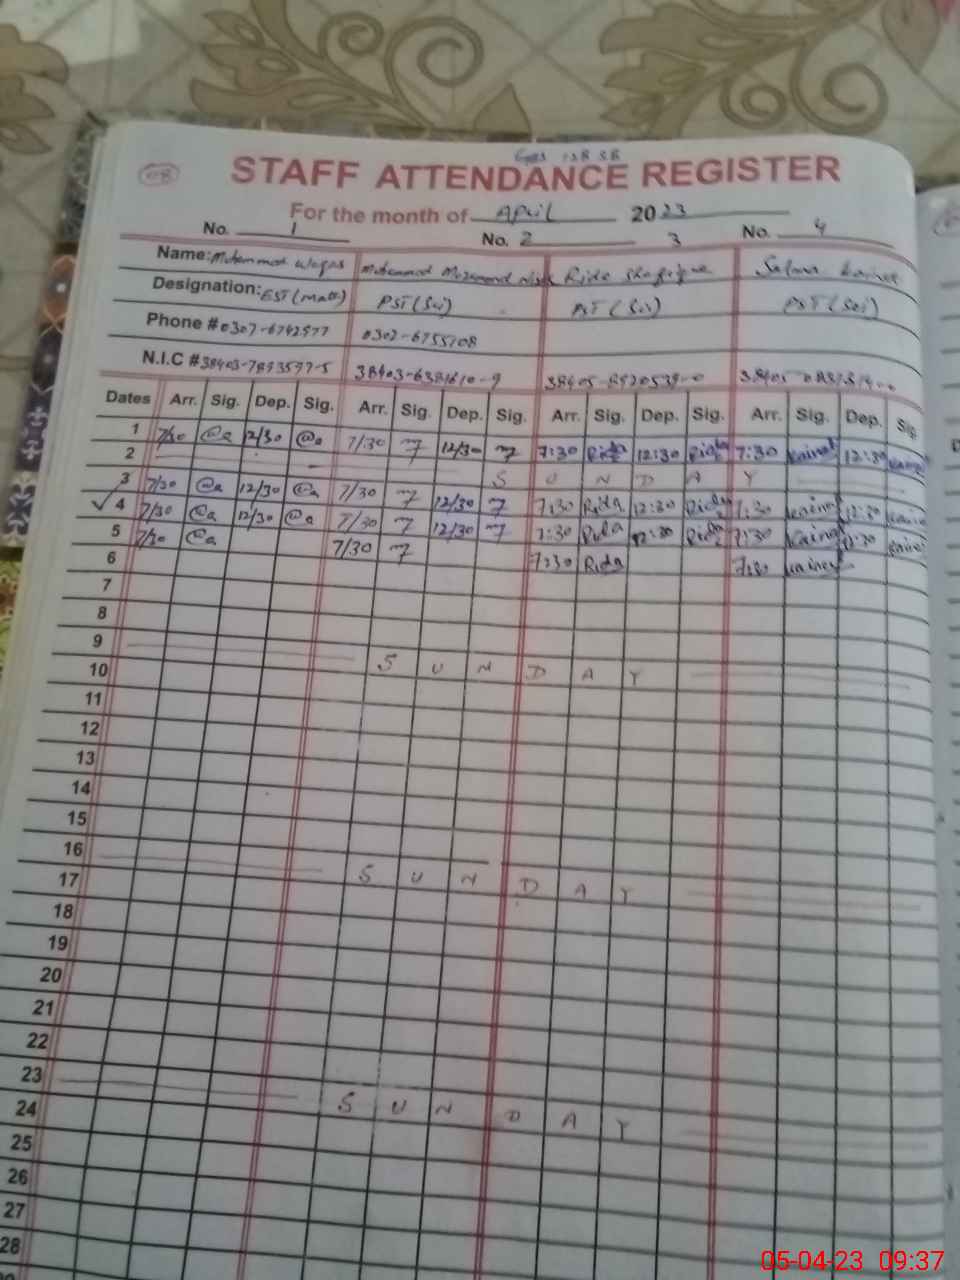 08
STAFF ATTENDANCE REGISTER
For the month of April 2023
No. 1 No. 2 3 No. 4
Name: Mohammad Waqas Mohammad Rida Shafique Salma Kainat
Designation: EST (Math) PST (Sci) PST (Sci) PST (Sci)
Phone # 0307-6742977 0302-6755108
N.I.C # 38403-7893597-5 38403-6381610-9 38405-8920539-0
Dates Arr. Sig. Dep. Sig. Arr. Sig. Dep. Sig. Arr. Sig. Dep. Sig. Arr. Sig. Dep. Sig.
1 7/30 12/30 7/30 12/30 7:30 Rida 12:30 Rida 7:30 Kainat 12:30 Kainat
2 S U N D A Y
3 7/30 12/30 7/30 12/30 7:30 Rida 12:30 Rida 7:30 Kainat 12:30 Kainat
4 7/30 12/30 7/30 12/30 7:30 Rida 12:30 Rida 7:30 Kainat 12:30 Kainat
5 7/30 7/30 7:30 Rida 7:30 Kainat
6
7
8
9 S U N D A Y
10
11
12
13
14
15
16 S U N D A Y
17
18
19
20
21
22
23 S U N D A Y
24
25
26
27
28
05-04-23 09:37